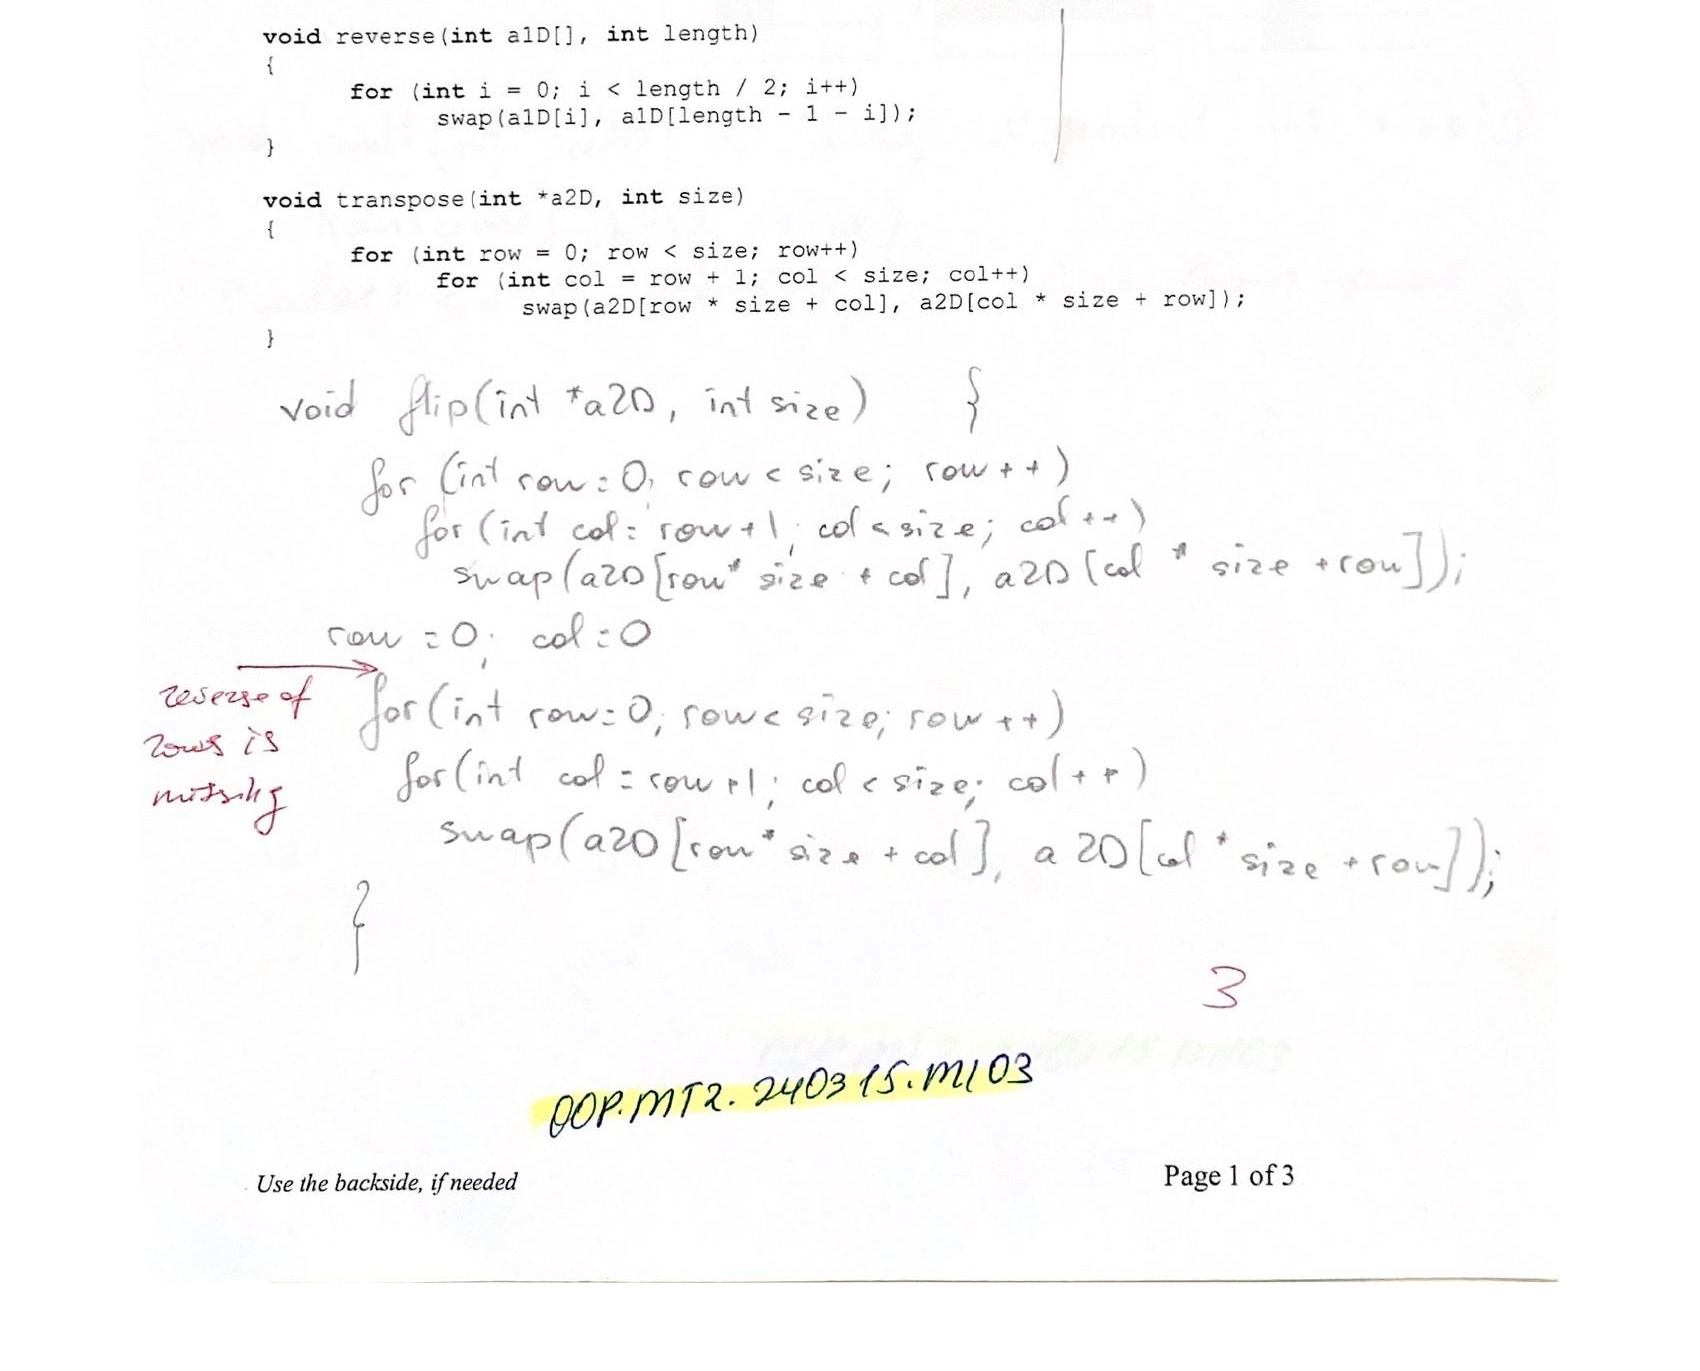 void reverse(int a1D[], int length)
{
for (int i = 0; i < length / 2; i++)
swap(a1D[i], a1D[length - 1 - i]);
}
void transpose(int *a2D, int size)
{
for (int row = 0; row < size; row++)
for (int col = row + 1; col < size; col++)
swap(a2D[row * size + col], a2D[col * size + row]);
}
void flip(int *a2D, int size) {
for (int row = 0, row < size; row ++)
for (int col = row+1; col < size; col ++)
swap(a2D[row* size + col], a2D[col * size + row]);
row = 0; col = 0
reverse of
rows is
missing
for (int row = 0; row < size; row ++)
for (int col = row+1; col < size; col ++)
swap(a2D[row* size + col], a2D[col * size + row]);
}
3
OOP.MT2.240315.M103
Use the backside, if needed
Page 1 of 3